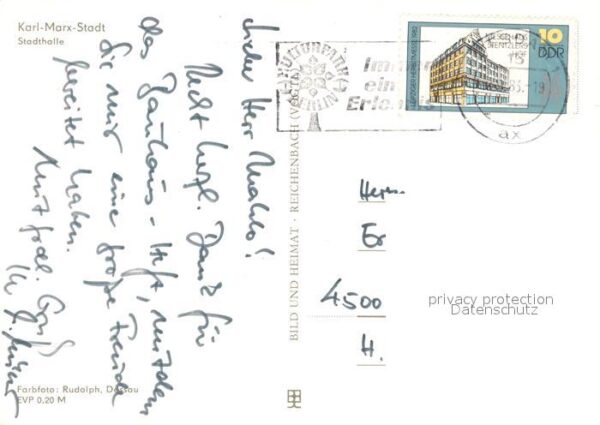 Karl-Marx-Stadt
Stadthalle
Lieber Herr
Recht herzl. Dank für
das Bauhaus-Heft, mit dem
Sie mir eine große Freude
bereitet haben.
Mit frdl. Gruß
Ihr
Farbfoto: Rudolph, Dessau
EVP 0,20 M
BILD UND HEIMAT · REICHENBACH (VOGTL)
KULTURPARK
BERLIN
Immer
ein
Erlebnis
10
DDR
LEIPZIGER HERBSTMESSE 1982
Herrn
Er
4500
H.
privacy protection
Datenschutz